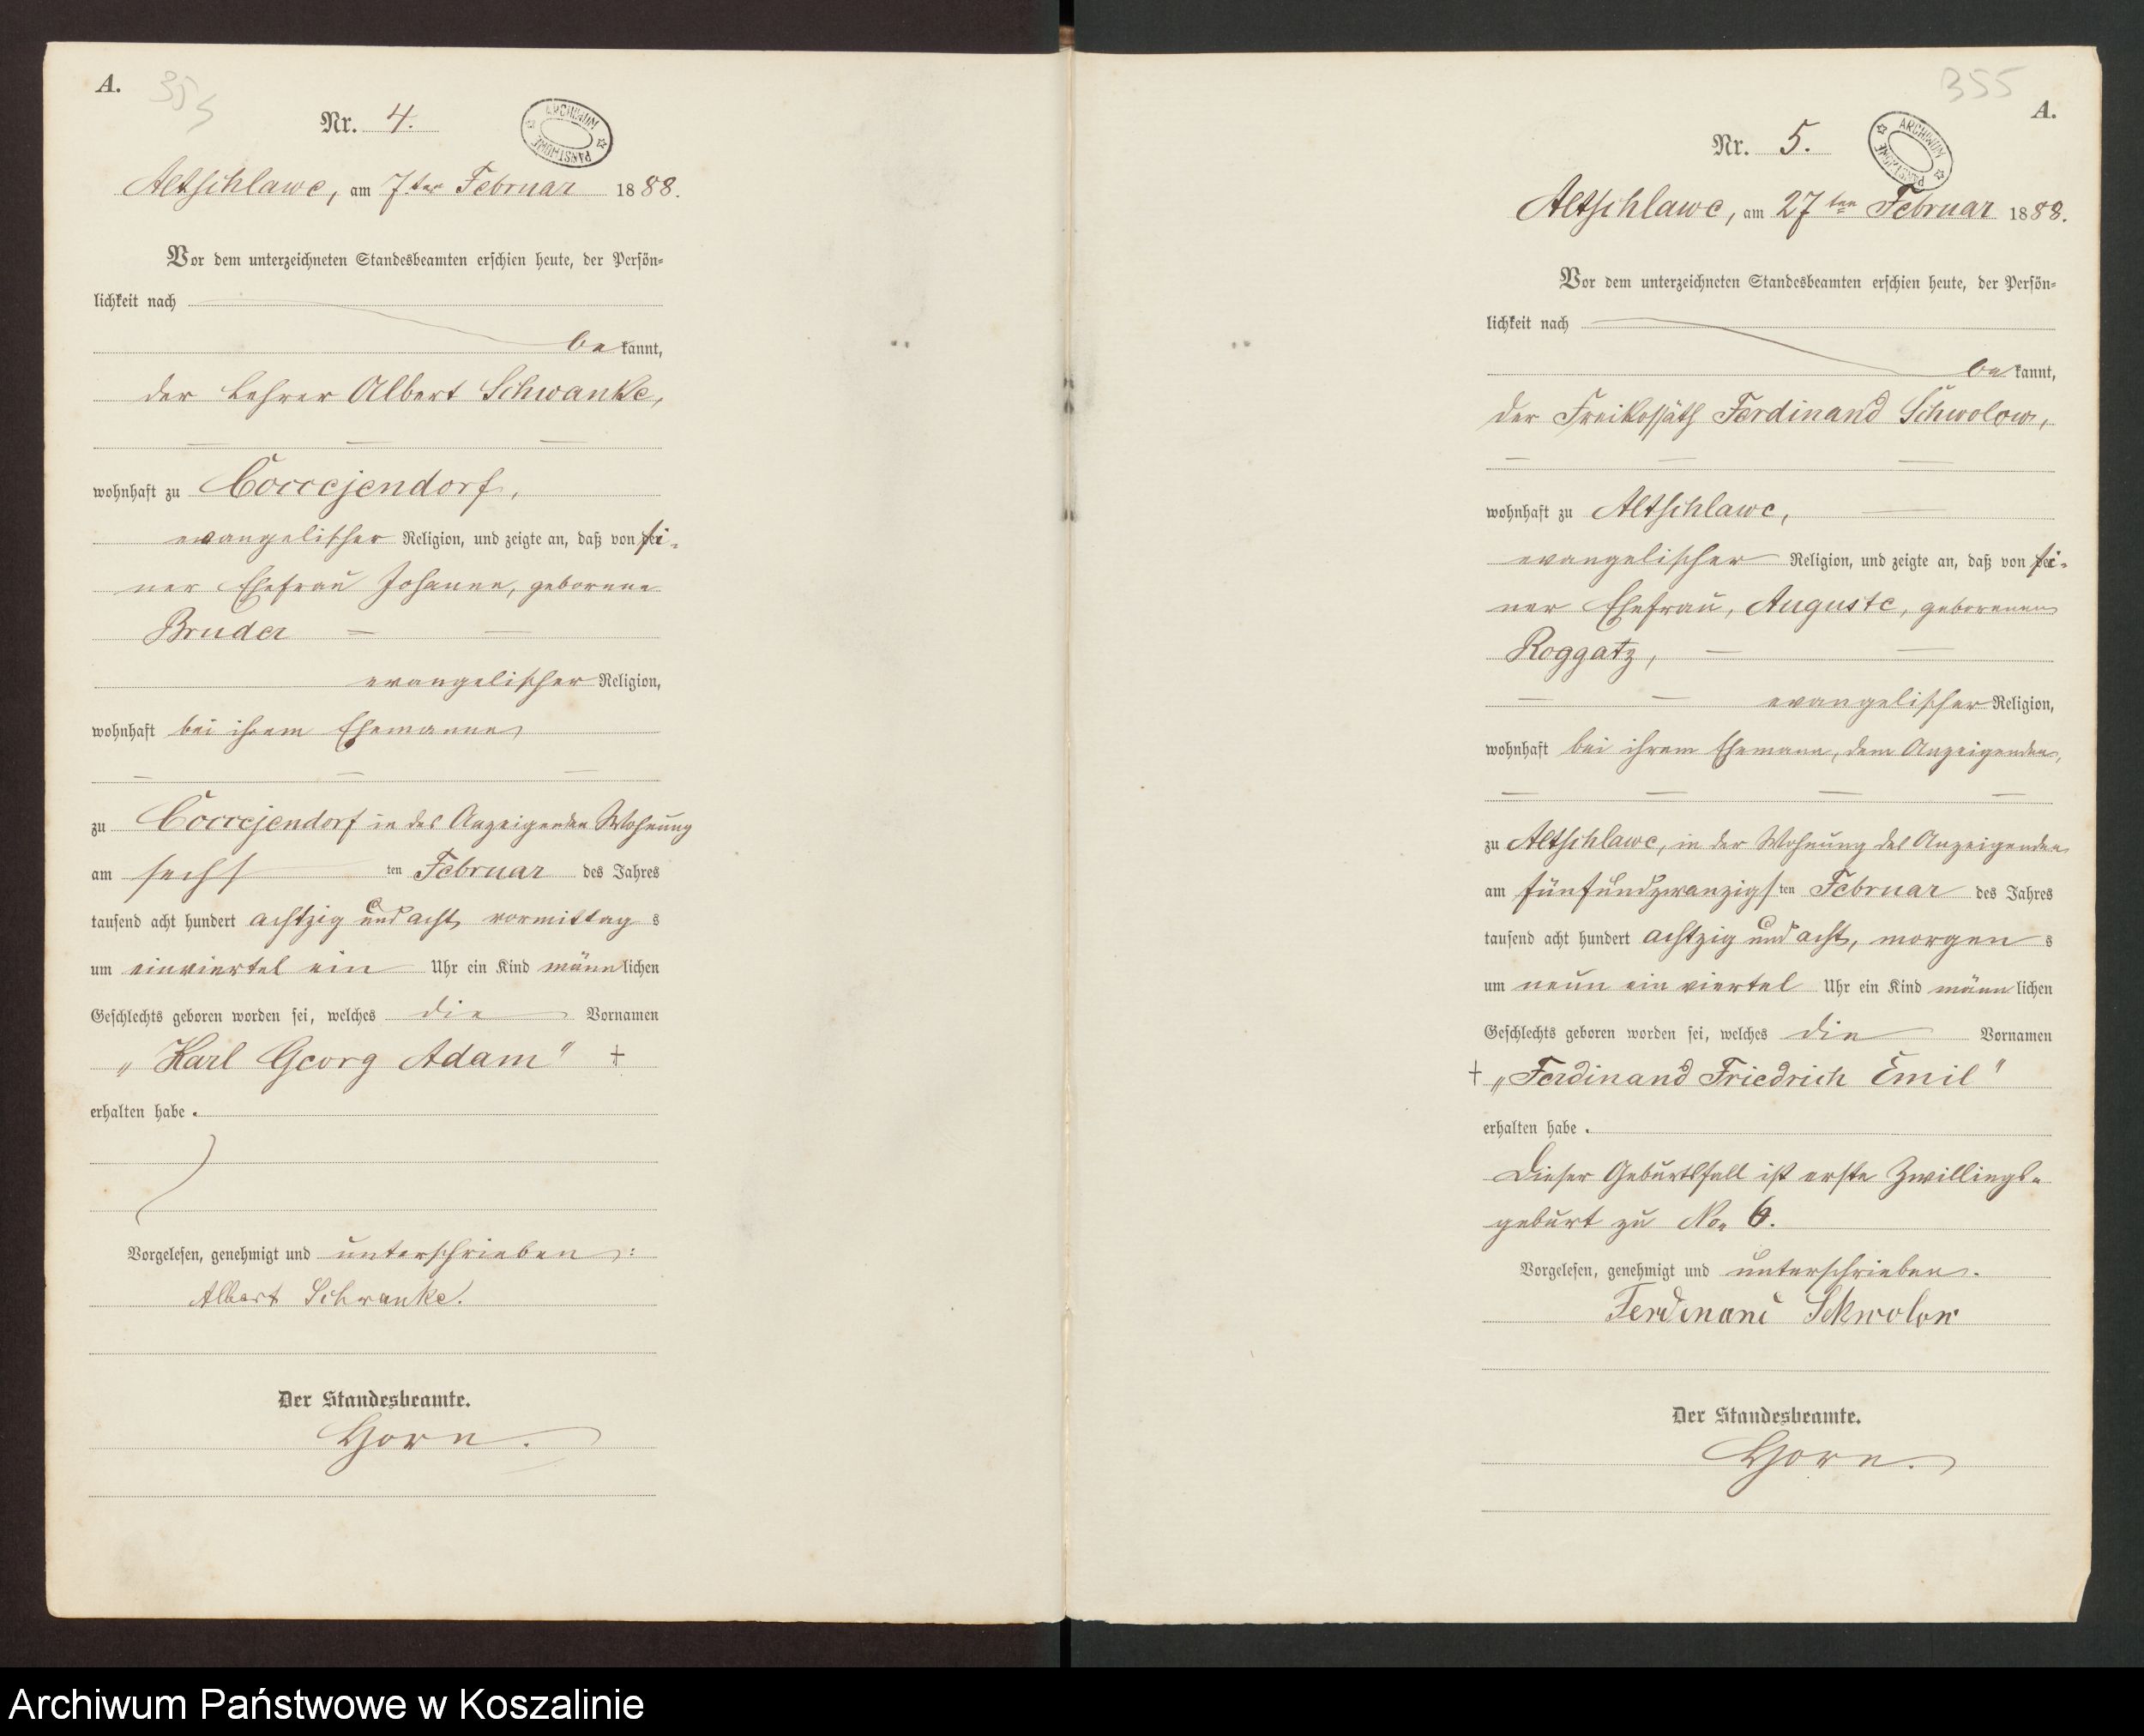 A.
Nr. 4.
ARCHIWUM PAŃSTWOWE
Altschlawe, am 7ten Februar 1888.
Vor dem unterzeichneten Standesbeamten erschien heute, der Persön-
lichkeit nach
bekannt,
der Lehrer Albert Schwanke,
wohnhaft zu Coccejendorf,
evangelischer Religion, und zeigte an, daß von sei-
ner Ehefrau Johanne, geborene
Bruder
evangelischer Religion,
wohnhaft bei ihrem Ehemanne
zu Coccejendorf in des Anzeigenden Wohnung
am sechsten Februar des Jahres
tausend acht hundert achtzig und acht, vormittags
um einviertel ein Uhr ein Kind männlichen
Geschlechts geboren worden sei, welches die Vornamen
„Karl Georg Adam" +
erhalten habe.
Vorgelesen, genehmigt und unterschrieben:
Albert Schwanke.
Der Standesbeamte.
Horn.
355
A.
Nr. 5.
ARCHIWUM PAŃSTWOWE
Altschlawe, am 27ten Februar 1888.
Vor dem unterzeichneten Standesbeamten erschien heute, der Persön-
lichkeit nach
bekannt,
der Freikossäth Ferdinand Schwolow,
wohnhaft zu Altschlawe,
evangelischer Religion, und zeigte an, daß von sei-
ner Ehefrau, Auguste, geborenen
Roggatz,
evangelischer Religion,
wohnhaft bei ihrem Ehemann, dem Anzeigenden,
zu Altschlawe, in der Wohnung des Anzeigenden
am fünfundzwanzigsten Februar des Jahres
tausend acht hundert achtzig und acht, morgens
um neun ein viertel Uhr ein Kind männlichen
Geschlechts geboren worden sei, welches die Vornamen
+ „Ferdinand Friedrich Emil"
erhalten habe.
Dieser Geburtsfall ist erste Zwillings-
geburt zu No. 6.
Vorgelesen, genehmigt und unterschrieben.
Ferdinand Schwolow
Der Standesbeamte.
Horn.
Archiwum Państwowe w Koszalinie